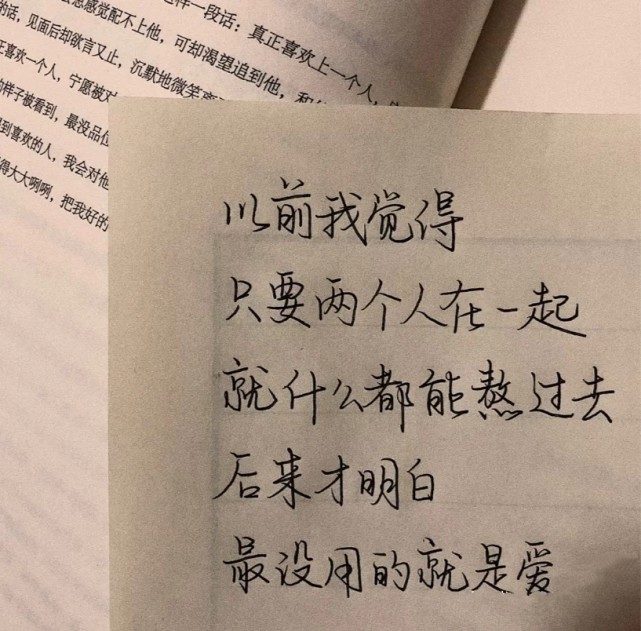 样一段话：真正喜欢上一个人，
感觉配不上他，可却渴望追到他，和
的话，见面后却欲言又止，沉默地微笑
喜欢一个人，宁愿被
样子被看到，最没品位
到喜欢的人，我会对他
得大大咧咧，把我好的
以前我觉得
只要两个人在一起
就什么都能熬过去
后来才明白
最没用的就是爱